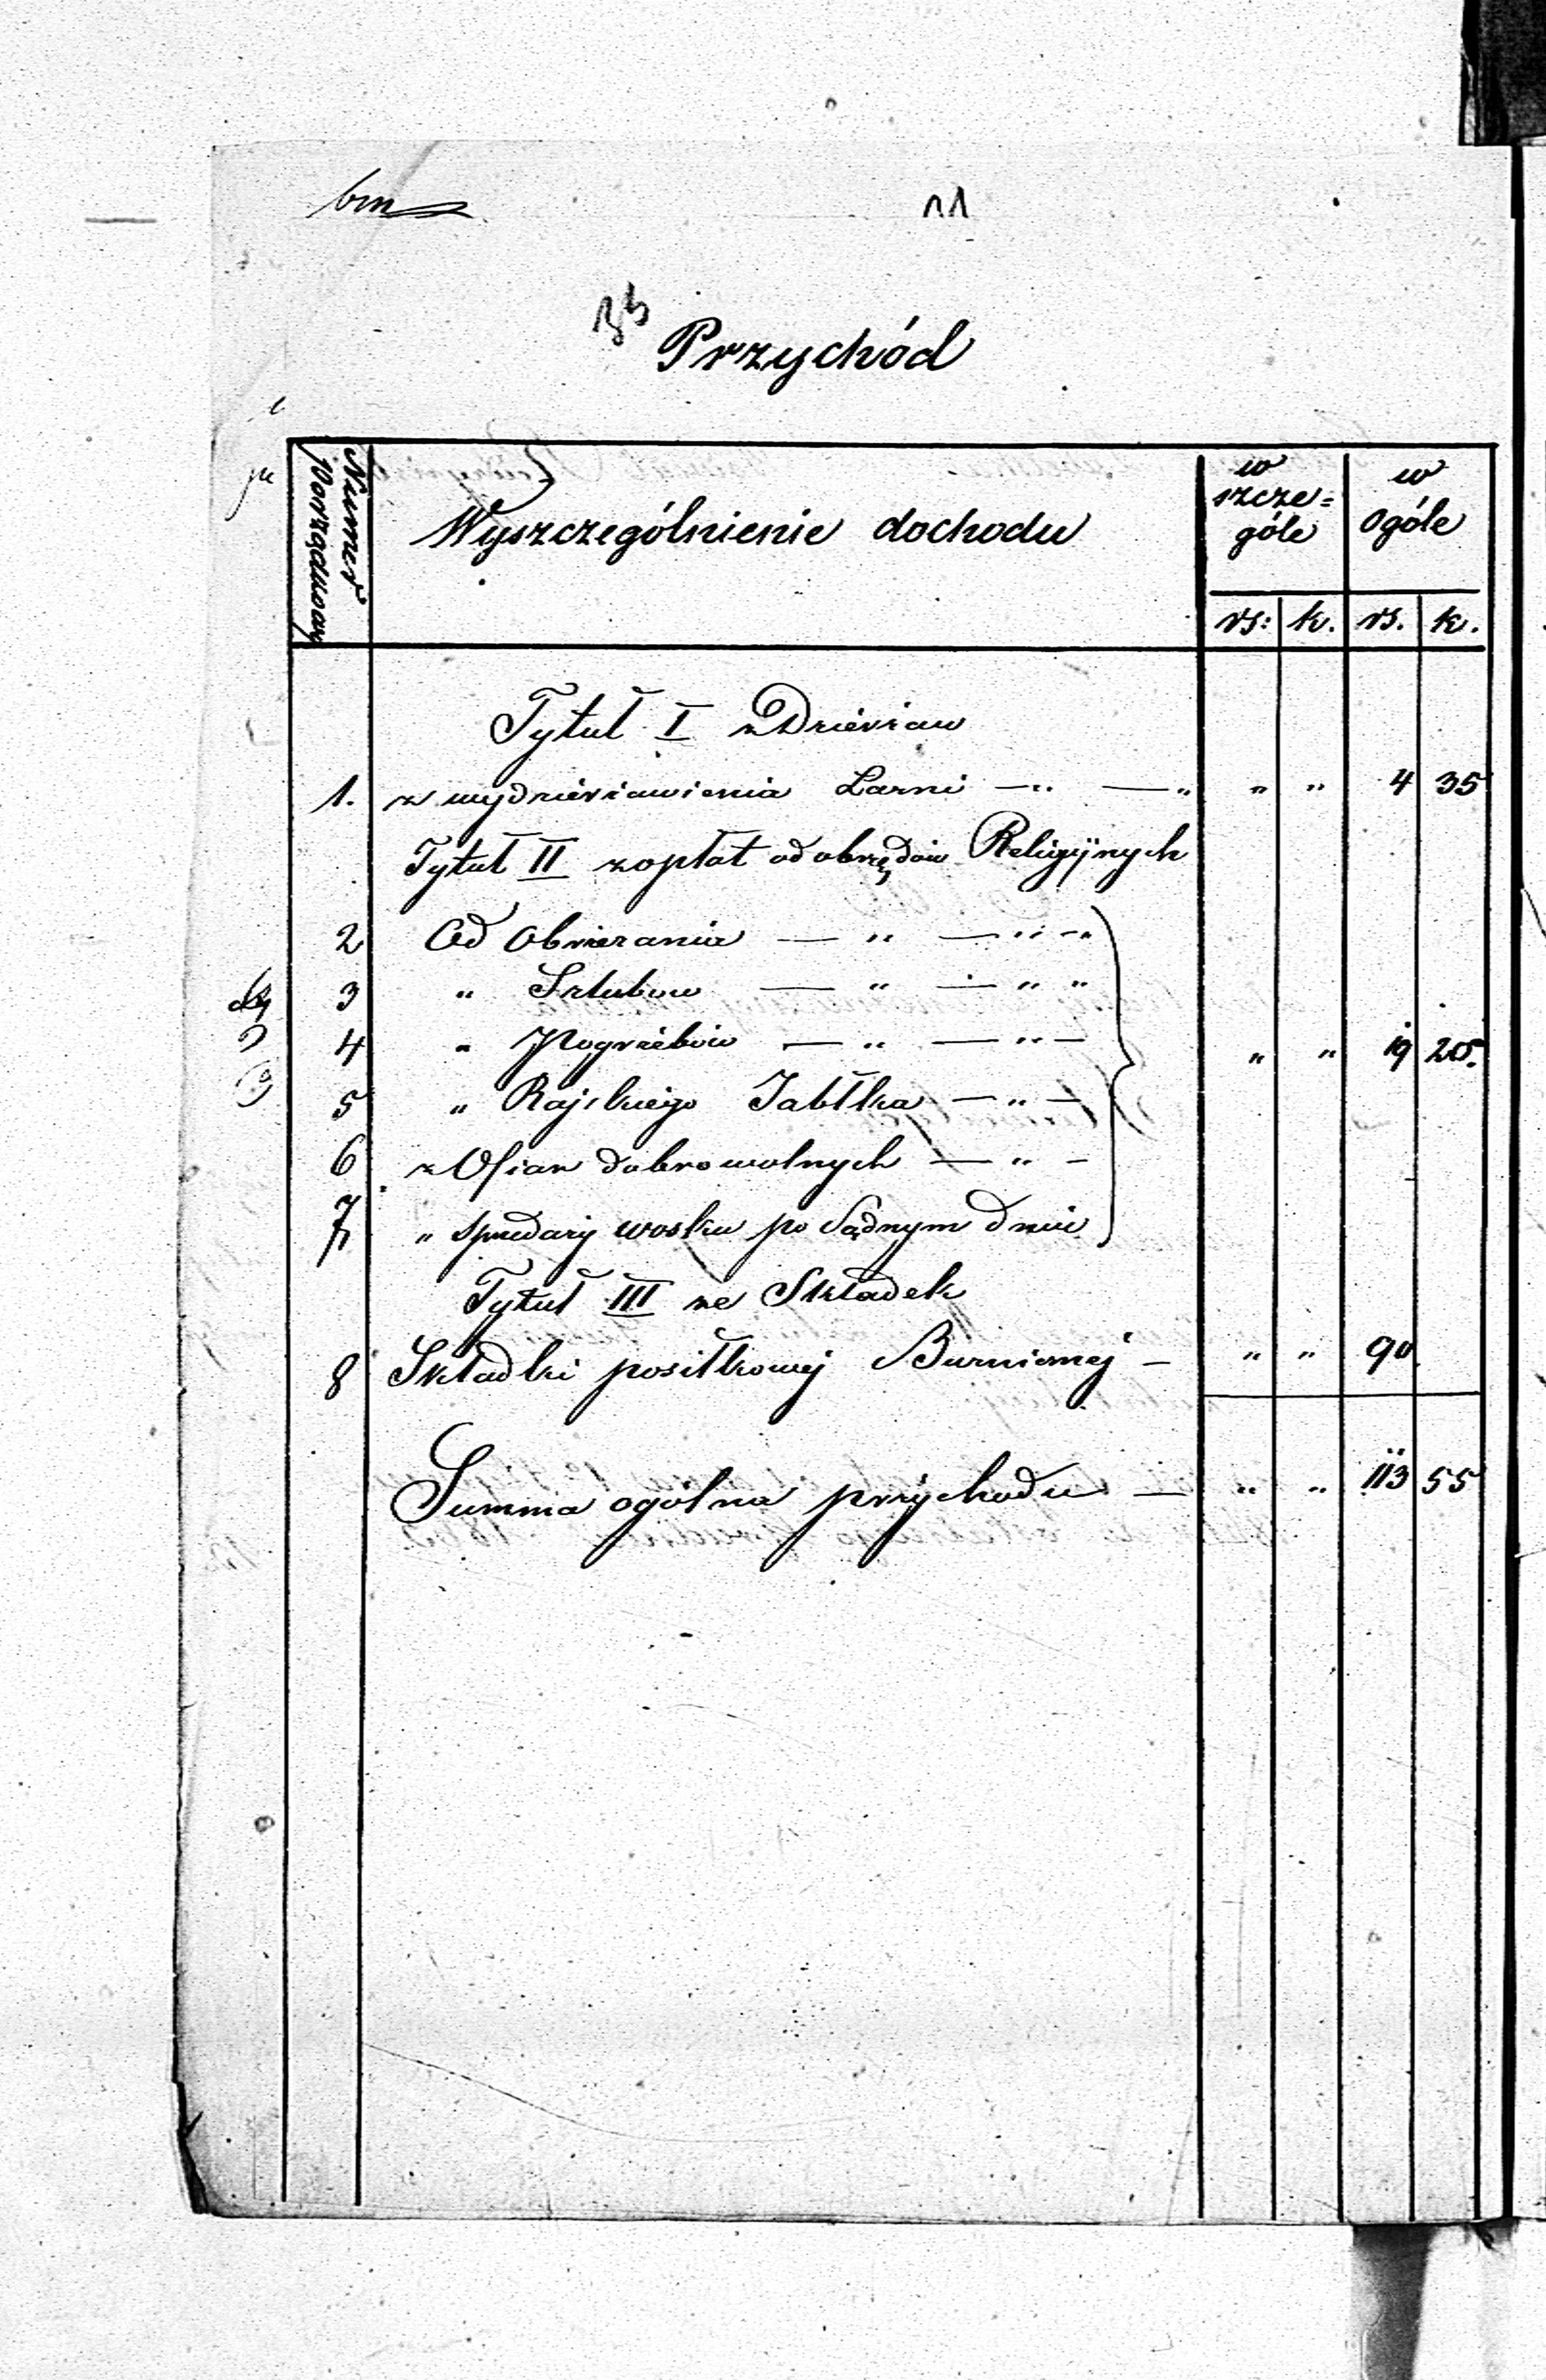 11
Przychód
Numer Porządkowy
Wyszczególnienie dochodu
w szcze= góle
w ogóle
rs: k. rs. k.
Tytuł I z Dzierżaw
1. z wydzierżawienia Łazni — „ — „ „ „ 4 35
Tytuł II z opłat od obrzędów Religijnych
2 Od Obrzezania — „ — „ — „
3 „ Szlubow — „ — „ „
4 „ Pogrzebów — „ — „ — „ „ 19 20.
5 „ Rajskiego Jabłka — „ —
6 z Ofiar dobrowolnych — „ —
7 „ spredaży wosku po Sądnym dniu
Tytuł III ze Składek
8 Składki posiłkowej Buznicnej — „ „ 90
Summa ogólna przychodu — „ „ 113 55